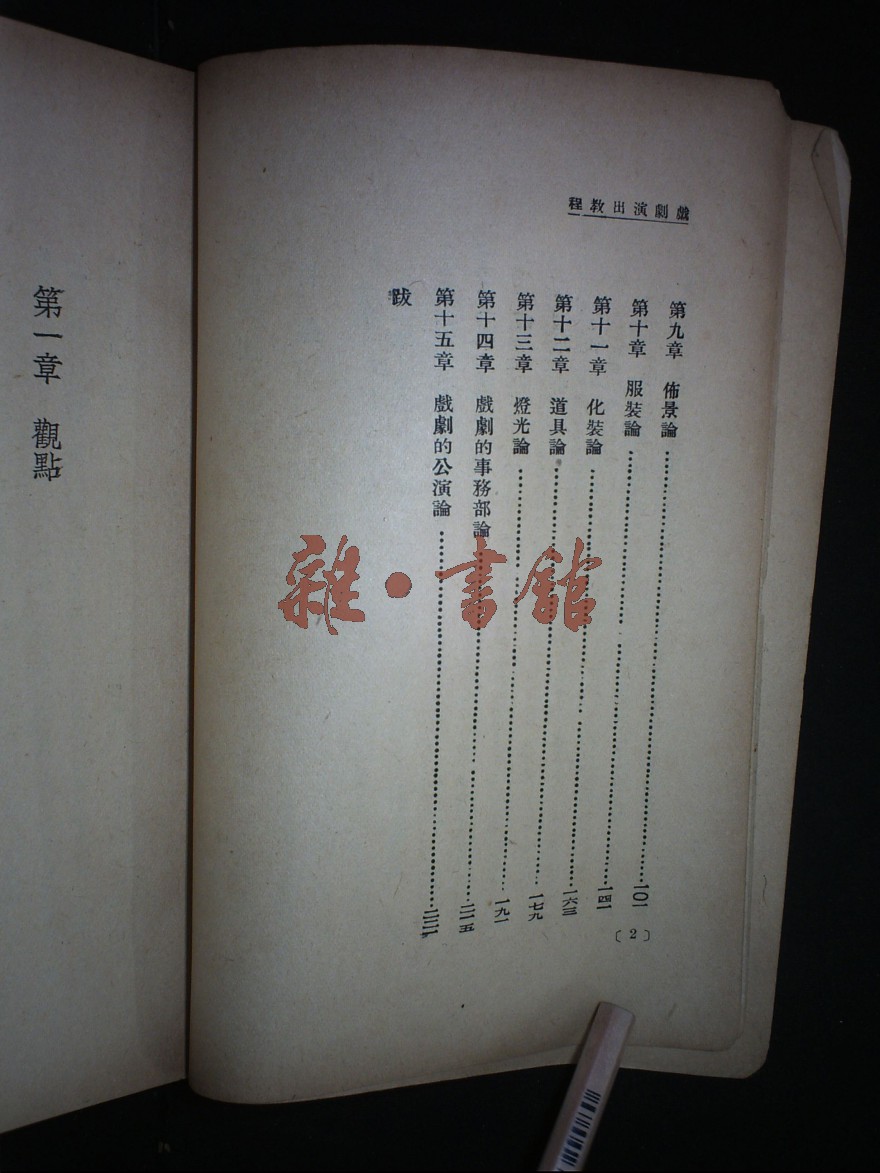 戲劇演出教程
第九章 佈景論⋯⋯一〇一
第十章 服裝論⋯⋯一四一
第十一章 化裝論⋯⋯一六三
第十二章 道具論⋯⋯一七九
第十三章 燈光論⋯⋯一九一
第十四章 戲劇的事務部論⋯⋯二一五
第十五章 戲劇的公演論⋯⋯
跋
〔2〕
第一章 觀點
雜·書館